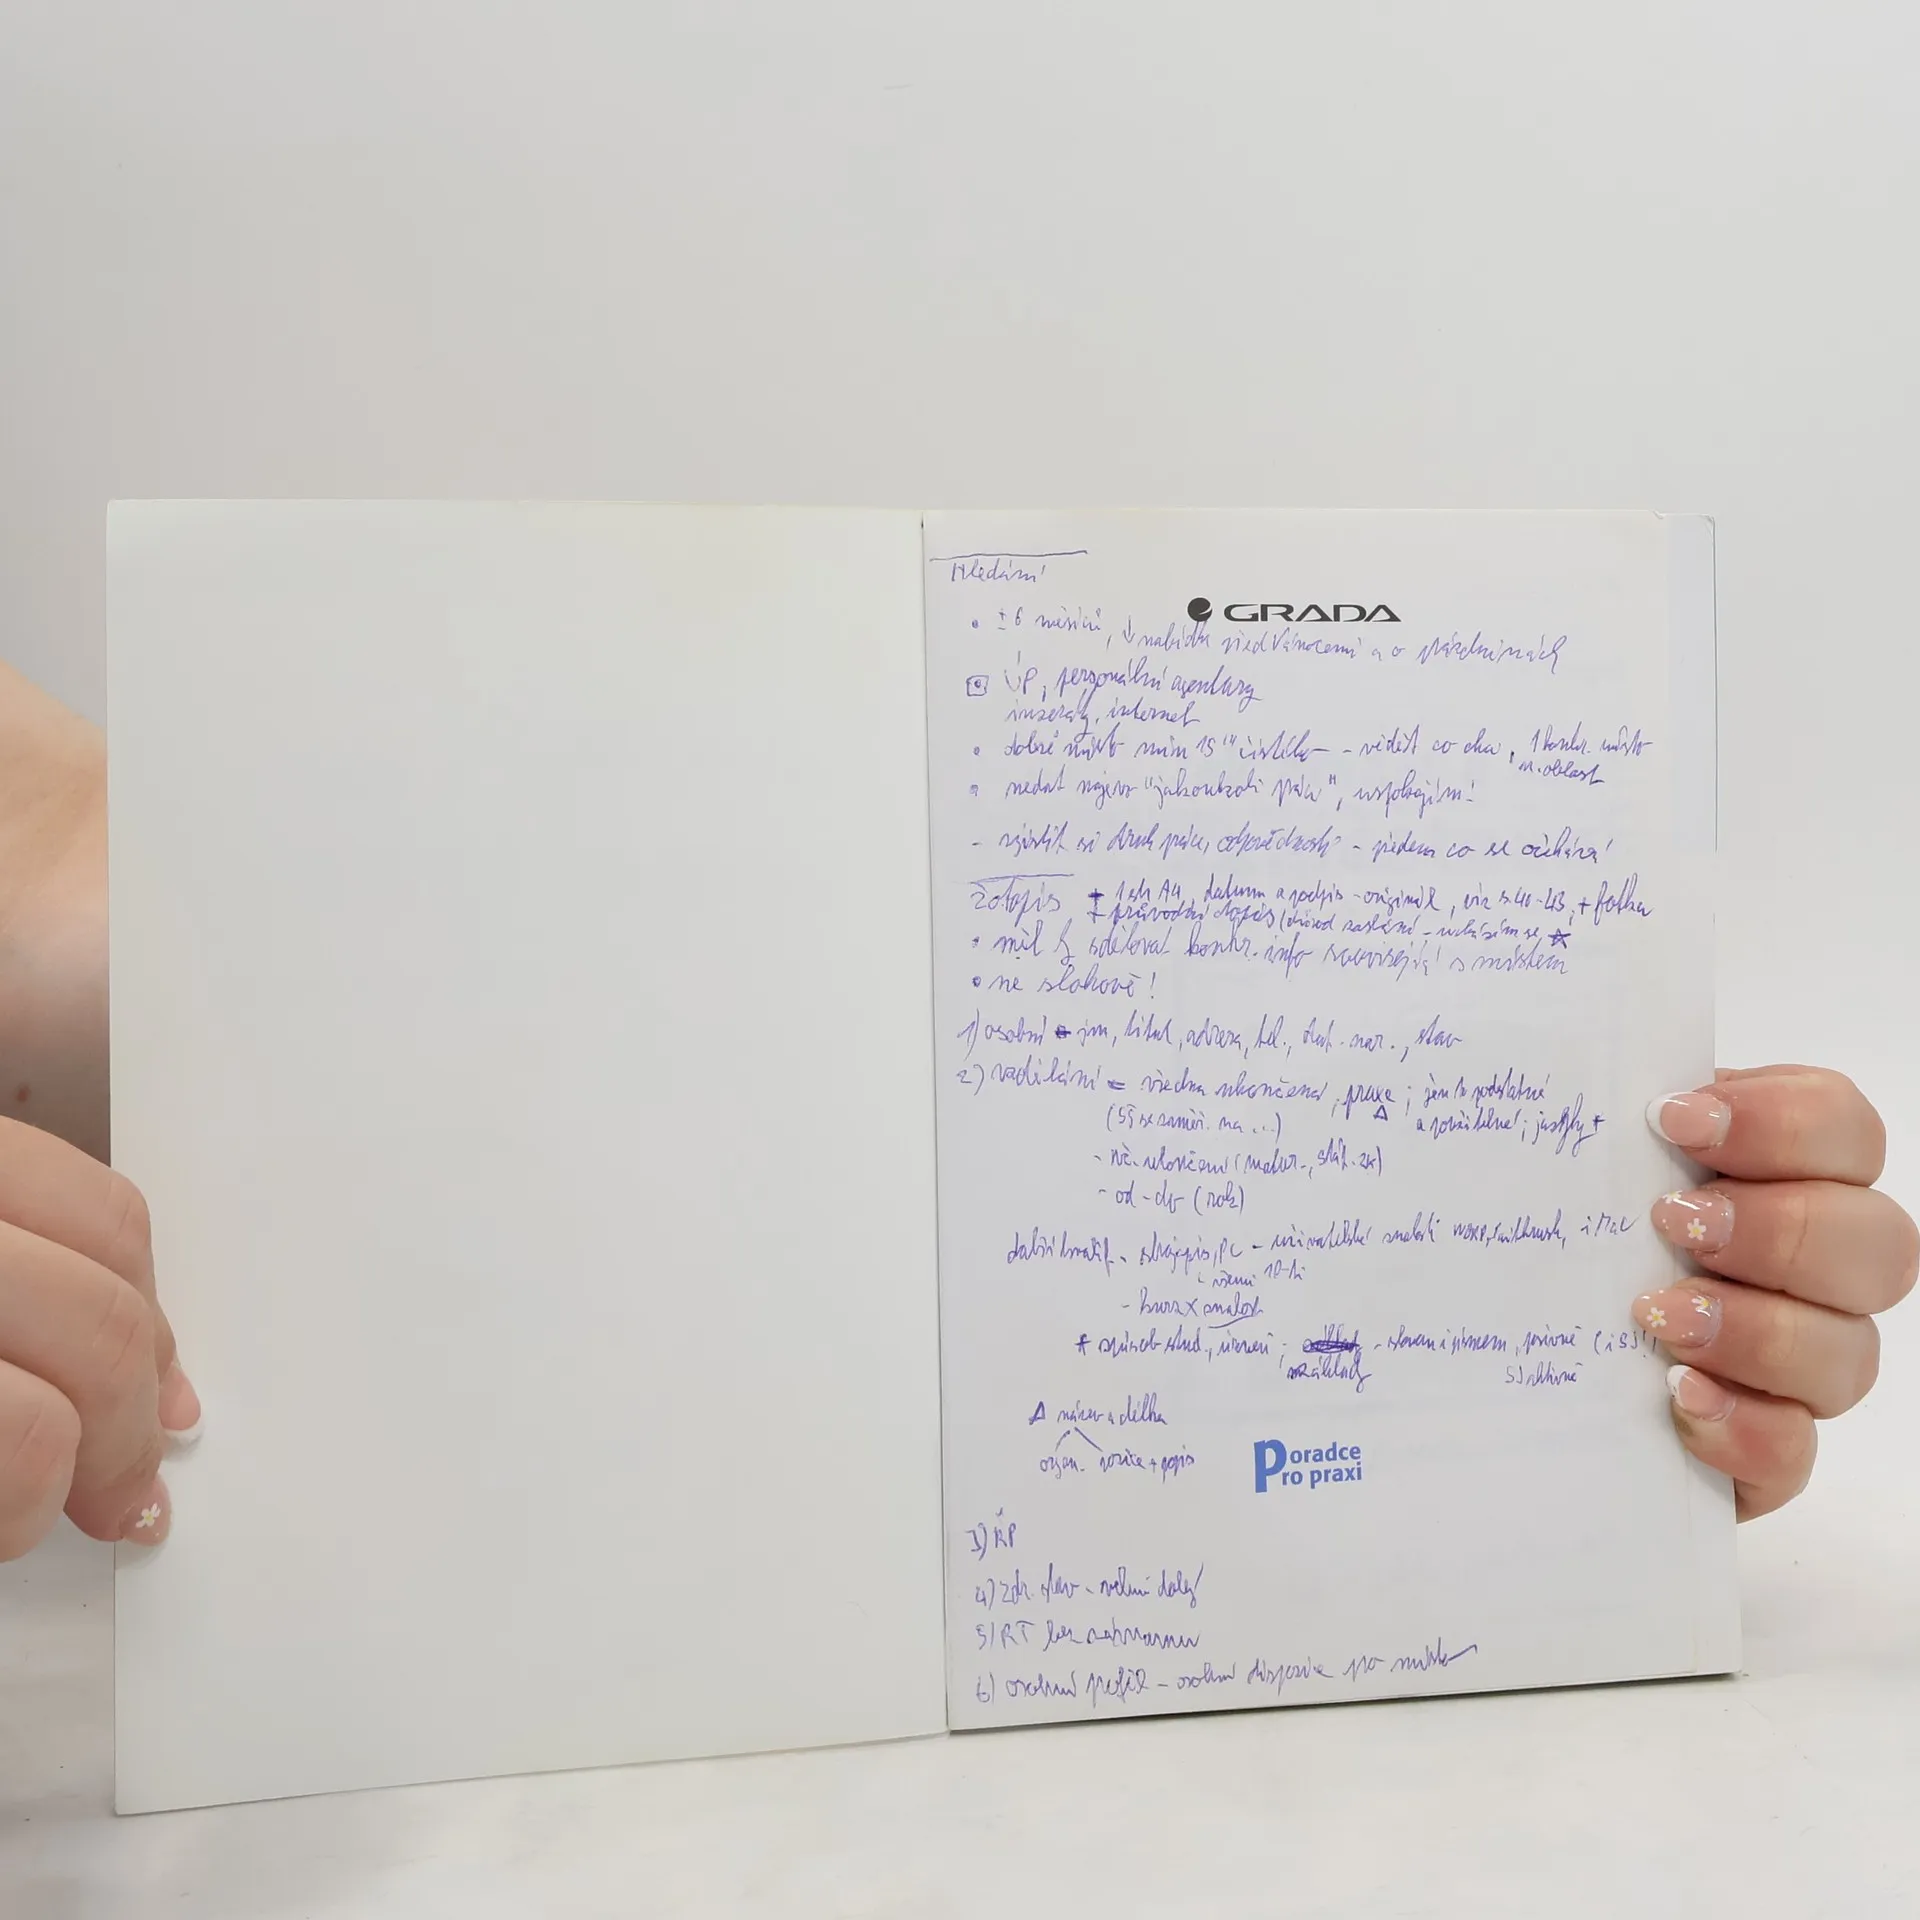 Hledání
GRADA
• ± 6 měsíců, ↓ nabídka před Vánocemi a o prázdninách
ÚP, personální agentury
inzeráty, internet
• dobré místo min 15 - vědět co chci, 1 konkr. místo
n. oblast
• nedat najevo "jakoukoli práci",
- zjistit si druh práce, odpovědnosti - předem co se očekává!
Životopis + 1 str A4, datum a podpis - originál, viz s. 40-43, + fotka
+ průvodní dopis (důvod zaslání - ucházím se
• měl by sdělovat konkr. info související s místem
• ne slohově!
1) osobní - jm, titul, adresa, tel., dat. nar., stav
2) vzdělání - všechna ukončená, praxe ; jen to podstatné
(SŠ se zaměř. na ...) a použitelné; jazyky *
- ukončení (matur., stát. zk)
- od - do (rok)
další kvalif - strojopis, PC - uživatelské znalosti
všemi 10-ti
- kurz x znalost
* způsob stud., úroveň ; - slovem i písmem, pasivně (i SJ!)
základy SJ aktivně
Δ název a délka
organ. pozice + popis
Poradce
Pro praxi
3) ŘP
4) zdr. stav - velmi dobrý
5) RT bez záznamu
6) osobní profil - osobní dispozice pro místo